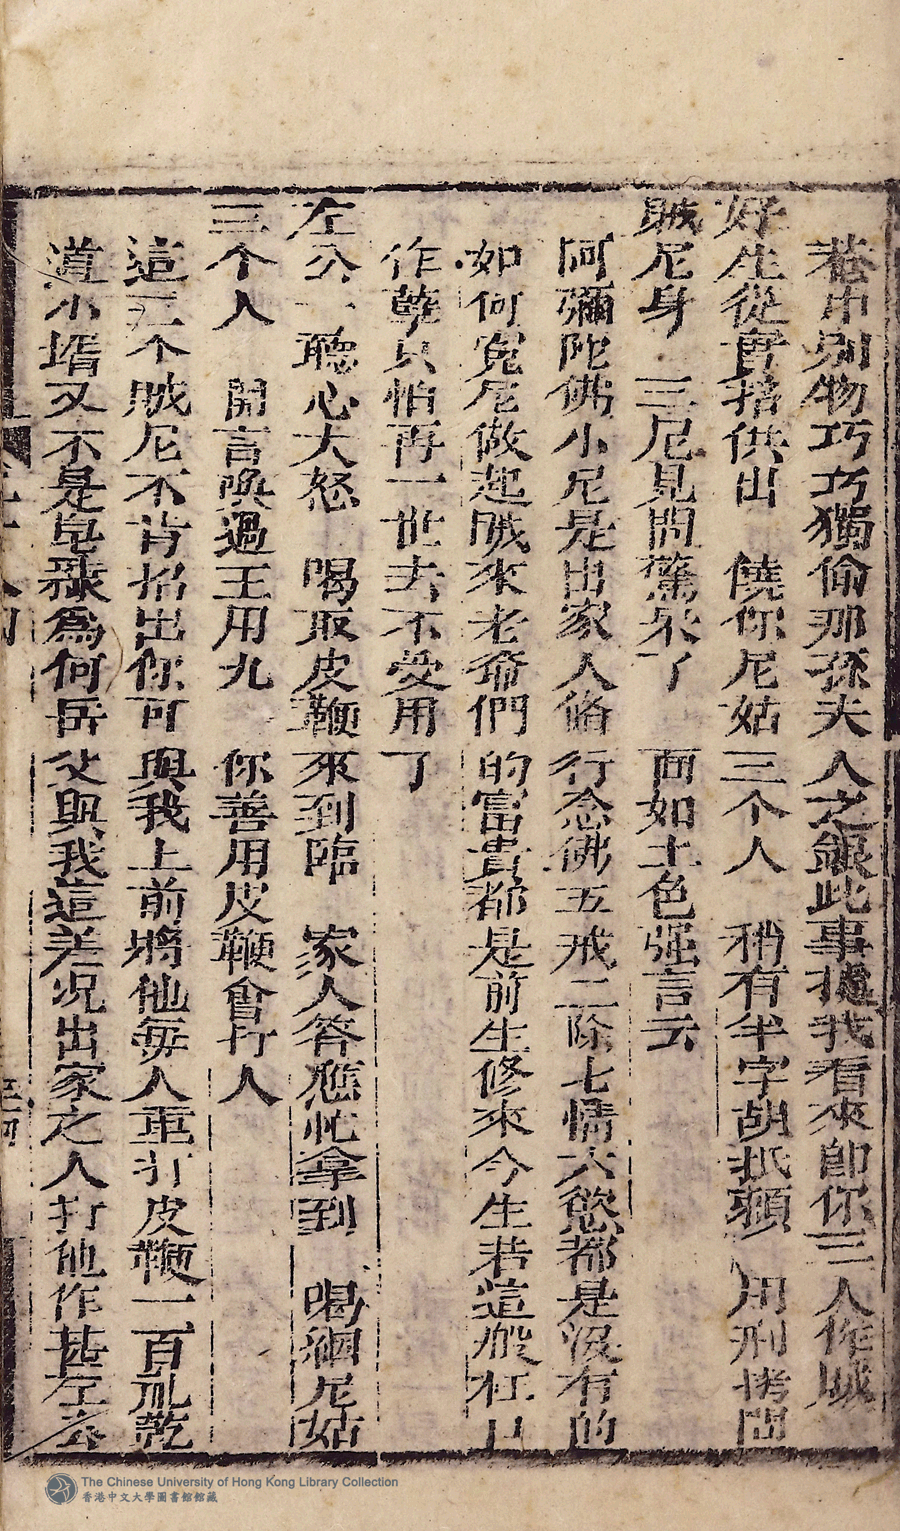 菴中别物巧巧獨偷那孫夫人之銀此事據我看來卽你三人作賊
好生從實招供出　饒你尼姑三个人　稍有半字胡抵賴　用刑拷問
賊尼身　三尼見問驚呆了　面如土色强言云
阿彌陀佛小尼是出家人脩行念佛五戒二除七情六慾都是没有的
如何寃尼做起賊來老爺們的富貴都是前生修來今生若這般枉口
作孽只怕再一世去不受用了
左公一聽心大怒　喝取皮鞭來到臨　家人答應忙拿到　喝綑尼姑
三个人　開言喚過王用九　你善用皮鞭會打人
這三个賊尼不肯招出你可與我上前將他每人重打皮鞭一百乩乾
道小壻又不是皂隸爲何岳父與我這差況出家之人打他作甚左公
The Chinese University of Hong Kong Library Collection
香港中文大學圖書館館藏